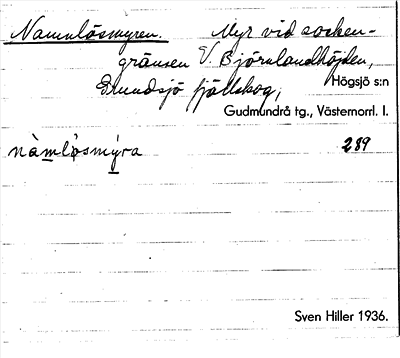 Namnlösmyren. Myr vid socken-
gränsen V. Björnlandhöjden,
Grundsjö fjällskog, Högsjö s:n
Gudmundrå tg., Västernorrl. l.
nàmlø̀smýra 289
Sven Hiller 1936.